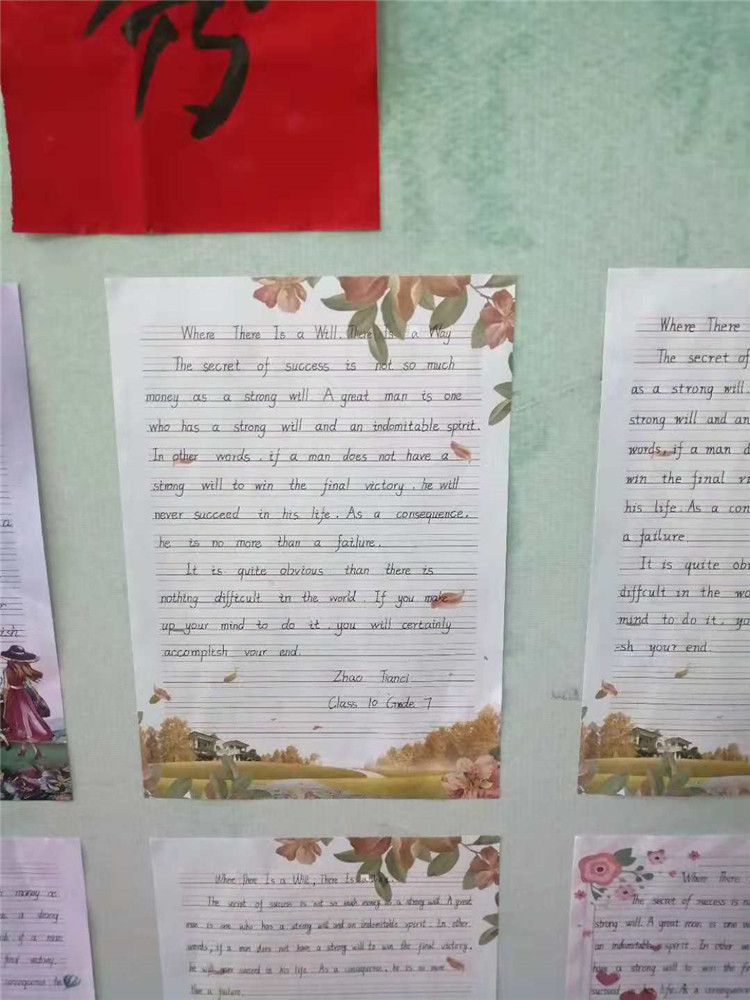 Where There Is a Will. There Is a Way
The secret of success is not so much
money as a strong will. A great man is one
who has a strong will and an indomitable spirit.
In other words, if a man does not have a
strong will to win the final victory, he will
never succeed in his life. As a consequence,
he is no more than a failure.
It is quite obvious than there is
nothing difficult in the world. If you make
up your mind to do it, you will certainly
accomplish your end.
Zhao Tianci
Class 10 Grade 7
Where There
The secret of
as a strong will.
strong will and an
words, if a man d
win the final vi
his life. As a con
a failure.
It is quite obv
diffcult in the wo
mind to do it, yo
-sh your end.
Where There Is a Will, There Is a
The secret of success is not so much money as a strong will. A great
man is one who has a strong will and an indomitable spirit. In other
words, if a man does not have a strong will to win the final victory,
he will never succeed in his life. As a consequence, he is no more
than a failure.
Where There
The secret of success is no
strong will. A great man is one w
an indomitable spirit. In other wo
have a strong will to win the final
succeed in his life. As a consequence
money as
a strong
if a man
final victory,
consequence, he